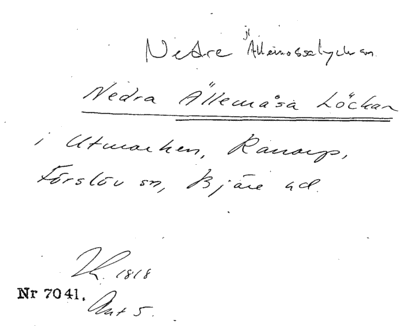 Nedre Ällemossalyckan
Nedra Ällemåsa Löckan
i Utmarken, Ranarp,
Förslöv sn, Bjäre hd.
1818
Nr 7041.
Akt 5.